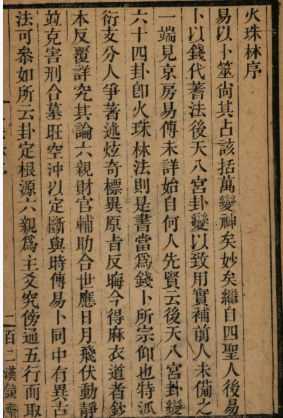 火珠林序
易以卜筮尚其占該括萬變神矣妙矣繼自四聖人後易
卜以錢代蓍法後天八宮卦變以致用實補前人未備之
一端見京房易傳未詳始自何人先賢云後天八宮卦變
六十四卦卽火珠林法則是書當爲錢卜所宗仰也特派
衍支分人爭著述炫奇標異原旨反晦今得麻衣道者鈔
本反覆詳究其論六親財官輔助合世應日月飛伏動靜
竝克害刑合墓旺空沖以定斷與時傳易卜同中有異古
法可參如所云卦定根源六親爲主爻究傍通五行而取
百二漢鏡